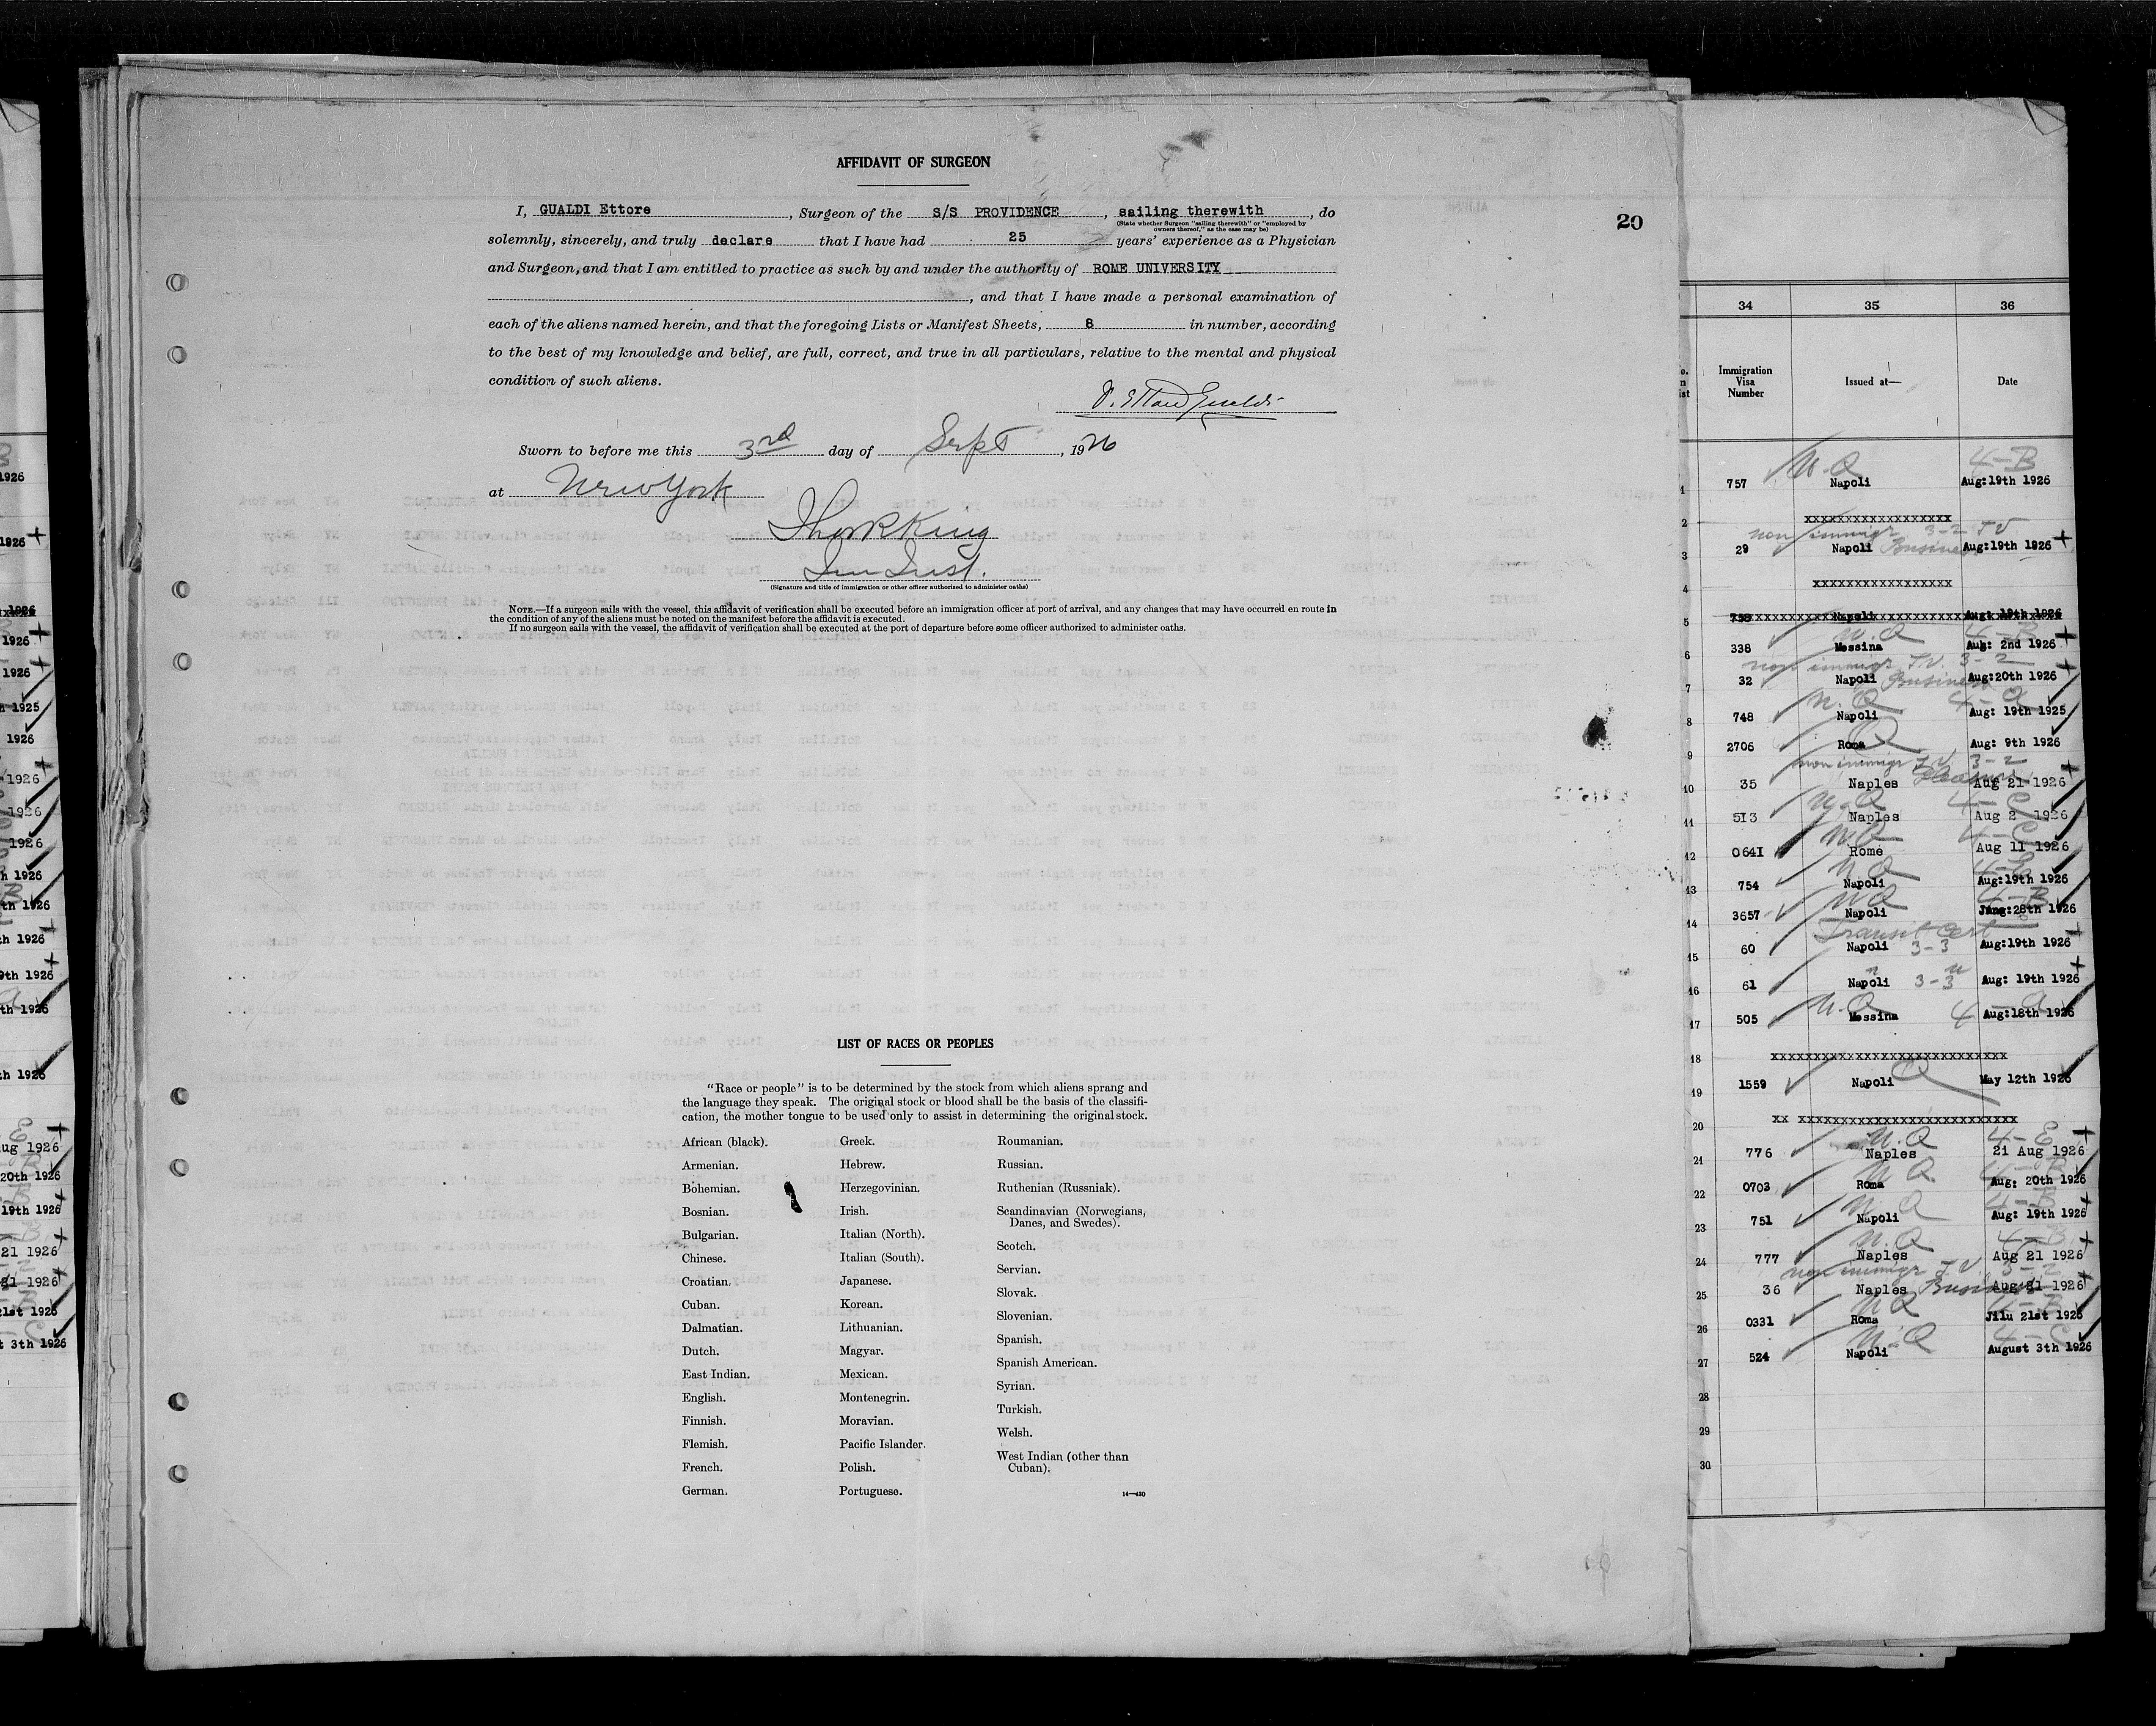 AFFIDAVIT OF SURGEON
I, GUALDI Ettore, Surgeon of the S/S PROVIDENCE, sailing therewith, do
(State whether Surgeon "sailing therewith" or "employed by
owners thereof," as the case may be)
20
solemnly, sincerely, and truly declare that I have had 25 years' experience as a Physician
and Surgeon, and that I am entitled to practice as such by and under the authority of ROME UNIVERSITY
, and that I have made a personal examination of
each of the aliens named herein, and that the foregoing Lists or Manifest Sheets, 8 in number, according
to the best of my knowledge and belief, are full, correct, and true in all particulars, relative to the mental and physical
condition of such aliens.
Sworn to before me this 3rd day of Sept, 1926
at New York
(Signature and title of immigration or other officer authorized to administer oaths)
NOTE.—If a surgeon sails with the vessel, this affidavit of verification shall be executed before an immigration officer at port of arrival, and any changes that may have occurred en route in
the condition of any of the aliens must be noted on the manifest before the affidavit is executed.
If no surgeon sails with the vessel, the affidavit of verification shall be executed at the port of departure before some officer authorized to administer oaths.
LIST OF RACES OR PEOPLES
"Race or people" is to be determined by the stock from which aliens sprang and
the language they speak. The original stock or blood shall be the basis of the classifi-
cation, the mother tongue to be used only to assist in determining the original stock.
African (black).
Armenian.
Bohemian.
Bosnian.
Bulgarian.
Chinese.
Croatian.
Cuban.
Dalmatian.
Dutch.
East Indian.
English.
Finnish.
Flemish.
French.
German.
Greek.
Hebrew.
Herzegovinian.
Irish.
Italian (North).
Italian (South).
Japanese.
Korean.
Lithuanian.
Magyar.
Mexican.
Montenegrin.
Moravian.
Pacific Islander.
Polish.
Portuguese.
Roumanian.
Russian.
Ruthenian (Russniak).
Scandinavian (Norwegians,
Danes, and Swedes).
Scotch.
Servian.
Slovak.
Slovenian.
Spanish.
Spanish American.
Syrian.
Turkish.
Welsh.
West Indian (other than
Cuban).
14—430
34 35 36
Immigration Visa Number Issued at— Date
1 757 N.Q Napoli 4-B Aug:19th 1926
2 xxxxxxxxxxxxxxxxx
non immigr 3-2 TV
3 29 Napoli Business Aug:19th 1926
4 xxxxxxxxxxxxxxxx
5 758 Napoli Aug: 19th 1926
6 338 N.Q Messina 4-B Aug: 2nd 1926
non immigr T.V. 3-2
7 32 Napoli Business Aug:20th 1926
8 748 N.Q Napoli 4-a Aug: 19th 1925
9 2706 Q Roma Aug: 9th 1926
non immigr T.V 3-2
10 35 Naples Aug 21 1926
11 513 N.Q Naples 4-C Aug 2 1926
12 0641 N.Q Rome 4-C Aug 11 1926
13 754 N.Q Napoli 4-B Aug:19th 1926
14 3657 N.Q Napoli 4-B 28th 1926
Transit Cert
15 60 Napoli 3-3 Aug:19th 1926
16 61 Napoli 3-3 Aug: 19th 1926
17 505 N.Q Messina 4-a Aug:18th 1926
18 xxxxxxxxxxxxxxxxxxxxxxxxxxx
19 1559 Q Napoli May 12th 1926
20 xx xxxxxxxxxxxxxxxxxxxxxxxxx
21 776 N.Q Naples 4-E 21 Aug 1926
22 0703 N Q. Roma 4-B Aug: 20th 1926
23 751 N.Q Napoli 4-B Aug: 19th 1926
24 777 N.Q Naples 4-B Aug 21 1926
non immigr T V 3-2
25 36 Naples Business Aug 21 1926
26 0331 N Q Roma 4-B Jilu 21st 1926
27 524 N.Q Napoli 4-C August 3th 1926
28
29
30